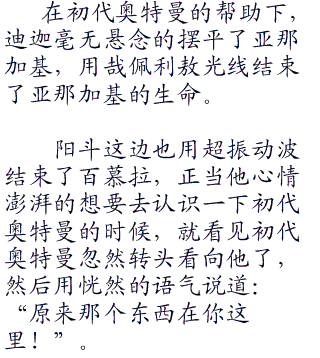 在初代奥特曼的帮助下，
迪迦毫无悬念的摆平了亚那
加基，用哉佩利敖光线结束
了亚那加基的生命。
阳斗这边也用超振动波
结束了百慕拉，正当他心情
澎湃的想要去认识一下初代
奥特曼的时候，就看见初代
奥特曼忽然转头看向他了，
然后用恍然的语气说道：
“原来那个东西在你这
里！”。